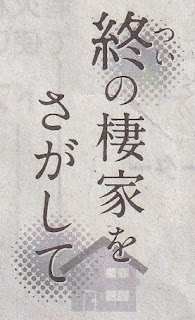 終の棲家を
つい
さがして